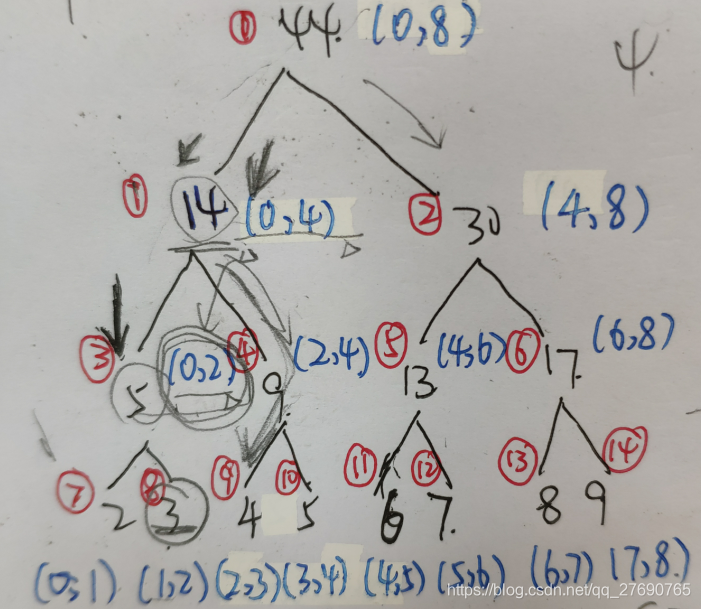 ⓪ 44. (0,8)
① 14 (0,4) ② 30 (4,8)
③ 5 (0,2) ④ 9. (2,4) ⑤ 13 (4,6) ⑥ 17. (6,8)
⑦ 2 ⑧ 3 ⑨ 4 ⑩ 5 ⑪ 6 ⑫ 7. ⑬ 8 ⑭ 9
(0,1) (1,2) (2,3) (3,4) (4,5) (5,6) (6,7) (7,8.)
https://blog.csdn.net/qq_27690765